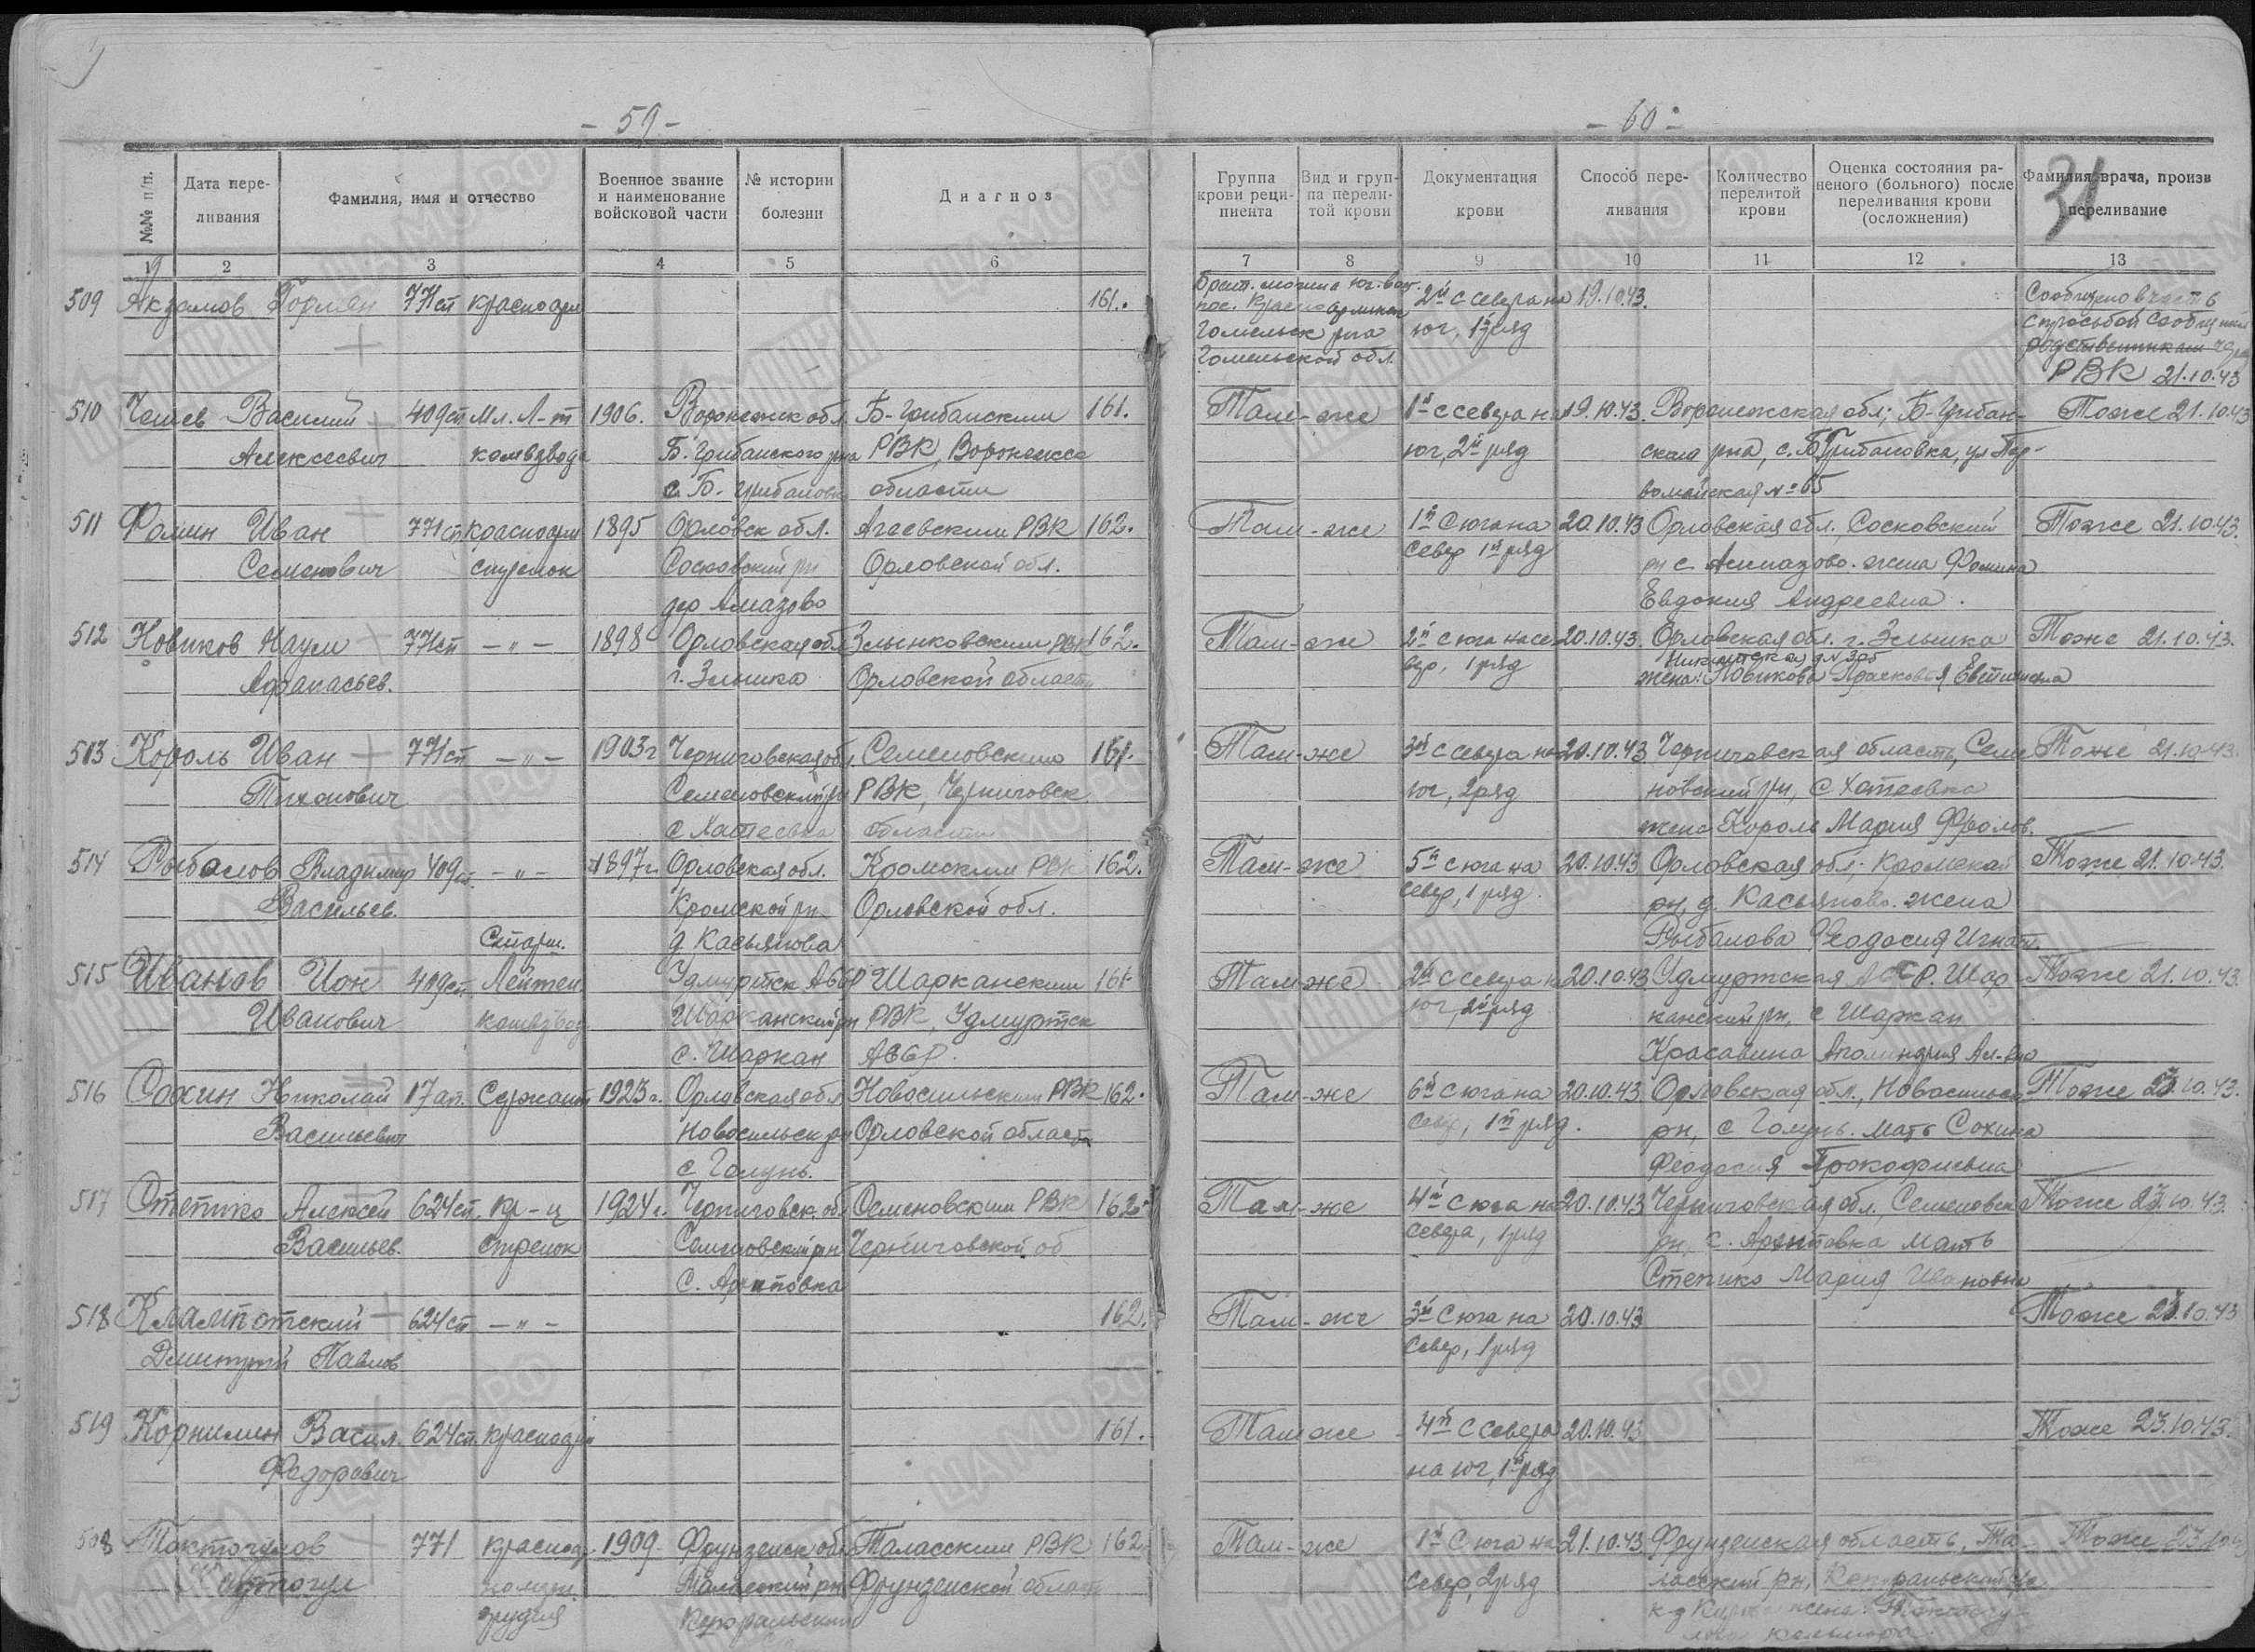 - 59 -
№№ п/п.
Дата пере-
ливания
Фамилия, имя и отчество
Военное звание
и наименование
войсковой части
№ истории
болезни
Диагноз
1 2 3 4 5 6
509 Акзамов 771сп красноарм 161.
510 Чешев Василий 409сп Мл. Л-т 1906. Воронежск обл. Б-Грибанским 161.
Алексеевич комвзвода Б. Грибанского р-на РВК, Воронежск
с. Б. Грибановк области
511 Фомин Иван 771сп красноарм 1895 Орловск обл. РВК 162.
Семенович стрелок Сосковский рн Орловской обл.
дер Алмазово
512 Новиков Наум 771сп -"- 1898 Орловская обл Злынковским РВК 162.
Афанасьев. г. Злынка Орловской области
513 Король Иван 771сп -"- 1903г Черниговская обл. Семеновским 161.
Тихонович Семеновский рн РВК, Черниговск.
с Хатеевка области
514 Рыбалов Владимир 409сп. -"- 1897г. Орловская обл. Кромским РВК 162.
Васильев. Кромской рн Орловской обл.
Старш. д Касьянова
515 Иванов Ион 409сп. Лейтен Удмуртск АССР Шарканским 161
Иванович комвзвод Шарканский рн РВК, Удмуртск
с. Шаркан АССР.
516 Сохин Николай 17ап. Сержант 1923г. Орловская обл Новосильским РВК 162.
Васильевич Новосильск рн Орловской области
с Голунь.
517 Степико Алексей 624сп. кр-ц 1924г. Черниговск. обл Семеновским РВК 162
Васильев. стрелок Семеновский рн Черниговской об
с. Архиповка
518 624сп -"- 162.
Дмитрий Павлов
519 Корнилин Васил. 624сп. красноарм 161.
Федорович
508 Токтогулов 771 красноар. 1909 Фрунзенск обл Таласским РВК 162
Таласский рн Фрунзенской област
орудия
- 60 -
31
Группа
крови реци-
пиента
Вид и груп-
па перели-
той крови
Документация
крови
Способ пере-
ливания
Количество
перелитой
крови
Оценка состояния ра-
неного (больного) после
переливания крови
(осложнения)
Фамилия врача, произв
переливание
7 8 9 10 11 12 13
Брат. могила юг. вост. 2й с севера на 19.10.43. Сообщено в часть
пос. юг, 1й ряд с просьбой сообщить
Гомельск р-на родственникам
Гомельской обл. РВК 21.10.43
Там-же 1й с севера на 19.10.43. Воронежская обл; Б-Грибан- Тоже 21.10.43
юг, 2й ряд ского р-на, с. Б Грибановка, ул Пер-
вомайская № 65
Там-же 1й с юга на 20.10.43 Орловская обл., Сосковский Тоже 21.10.43.
север 1й ряд рн с. Алмазово. жена Фомина
Евдокия Андреевна.
Там-же 2й с юга на се- 20.10.43. Орловская обл. г. Злынка Тоже 21.10.43.
вер, 1 ряд
жена: Новикова Прасковья
Там-же 3й с севера на 20.10.43 Черниговская область, Семе Тоже 21.10.43.
юг, 2ряд новский рн, с. Хатеевка
жена Король Мария Фролов.
Там-же 5й с юга на 20.10.43 Орловская обл; Кромской Тоже 21.10.43.
север, 1 ряд. рн, д. Касьяново. жена
Рыбалова Феодосия Игнат
Там-же 2й с севера на 20.10.43 Удмуртская АССР. Шар Тоже 21.10.43.
юг, 2й ряд канский рн, с Шаркан
Красавина
Там-же 6й с юга на 20.10.43. Орловская обл., Новосильск Тоже 23.10.43.
север, 1й ряд. рн, с Голунь. мать Сохина
Феодосия Прокофиевна
Там-же 4й с юга на 20.10.43 Черниговская обл., Семеновск Тоже 23.10.43.
севера, 1ряд рн, с. Архиповка мать
Степико Мария Ивановна
Там-же 3й с юга на 20.10.43 Тоже 23.10.43
север, 1 ряд
Там же 4й с севера 20.10.43 Тоже 23.10.43.
на юг, 1й ряд
Там-же 1й с юга на 21.10.43 Фрунзенская область, Та- Тоже 23.10.43
север, 2ряд ласский рн,
жена